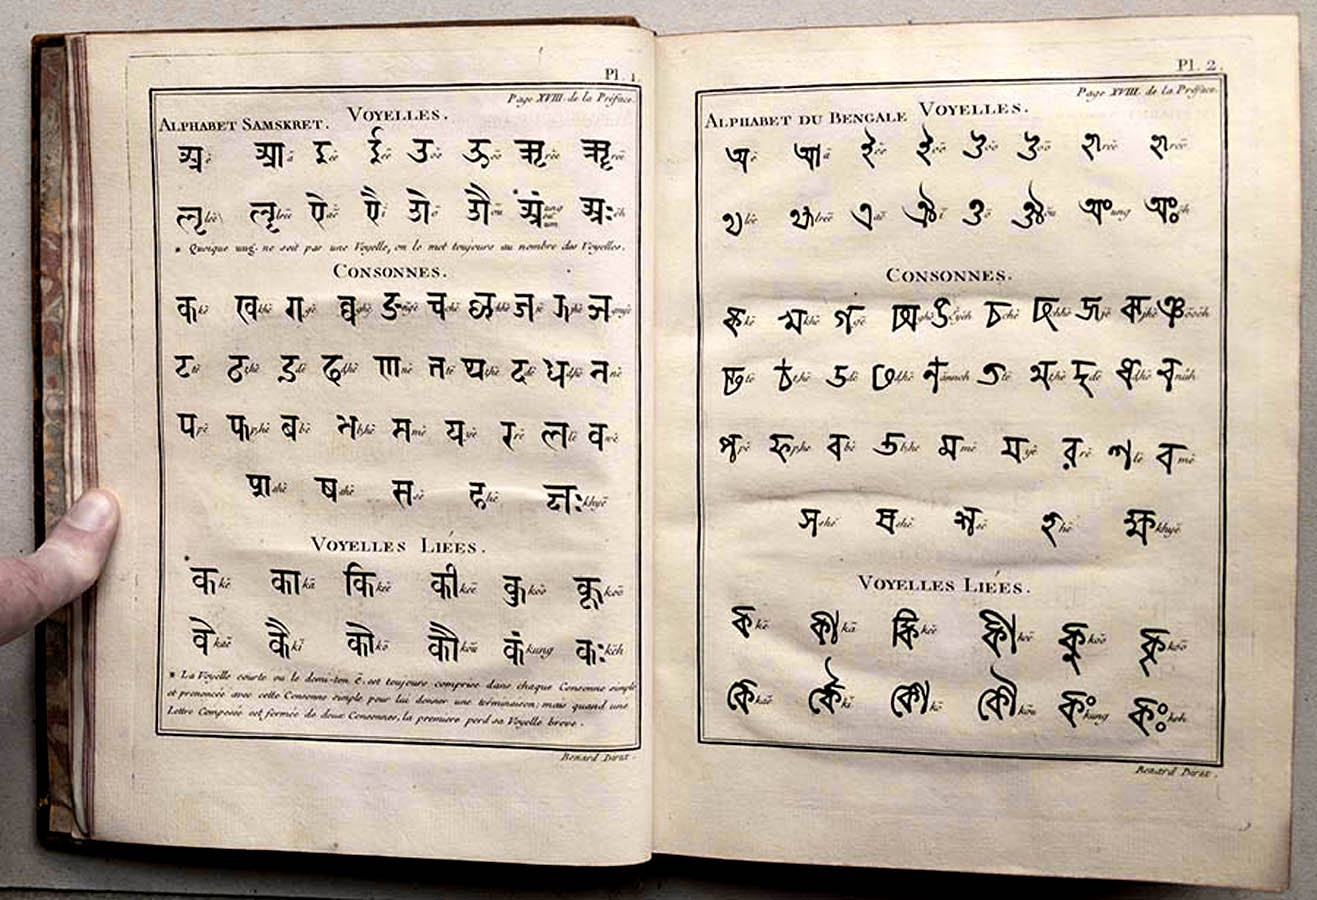 Pl. 1.
Page XVIII. de la Préface.
ALPHABET SAMSKRET. VOYELLES.
अ ĕ आ ā इ ĕĕ ई ēē उ ŏŏ ऊ ōō ऋ rĕĕ ॠ rēē
ऌ lĕĕ ॡ lrēē ए aē ऐ ī ओ ō औ ōu अं ung अः ĕh
* Quoique ung. ne soit pas une Voyelle, on le met toujours au nombre des Voyelles.
CONSONNES.
क kĕ ख khĕ ग gĕ घ ghĕ ङ च chĕ छ chhĕ ज jĕ झ jhĕ ञ
ट tĕ ठ thĕ ड dĕ ढ dhĕ ण nĕ त tĕ थ thĕ द dĕ ध dhĕ न nĕ
प pĕ फ phĕ ब bĕ भ bhĕ म mĕ य yĕ र rĕ ल lĕ व wĕ
श shĕ ष shĕ स sĕ ह hĕ क्षः khyĕ
VOYELLES LIÉES.
* क kĕ का kā कि kĕĕ की kēē कु kŏŏ कू kōō
के kaē कै kī को kō कौ kōu कं kung कः kĕh
* La Voyelle courte ou le demi-ton ĕ. est toujours comprise dans chaque Consonne simple
et prononcée avec cette Consonne simple pour lui donner une terminaison; mais quand une
Lettre Composée est formée de deux Consonnes, la premiere perd sa Voyelle breve.
Benard Direx.
Pl. 2.
Page XVIII. de la Préface.
ALPHABET DU BENGALE VOYELLES.
অ ĕ আ ā ই ĕĕ ঈ ēē উ ŏŏ ঊ ōō ঋ rĕĕ ৠ rēē
ঌ lĕĕ ৡ lrēē এ aē ঐ ī ও ō ঔ ōu অং ung অঃ ĕh
CONSONNES.
ক kĕ খ khĕ গ gĕ ঘ ghĕ ঙ চ chĕ ছ chhĕ জ jĕ ঝ jhĕ ঞ
ট tĕ ঠ thĕ ড dĕ ঢ dhĕ ণ annoh ত tĕ থ thĕ দ dĕ ধ dhĕ ন nŭh
প pĕ ফ phĕ ব bĕ ভ bhĕ ম mĕ য yĕ র rĕ ল lĕ ব wĕ
শ shĕ ষ shĕ স sĕ হ hĕ ক্ষ khyĕ
VOYELLES LIÉES.
ক kĕ কা kā কি kĕĕ কী kēē কু kŏŏ কূ kōō
কে kaē কৈ kī কো kō কৌ kōu কং kung কঃ keh
Benard Direx.